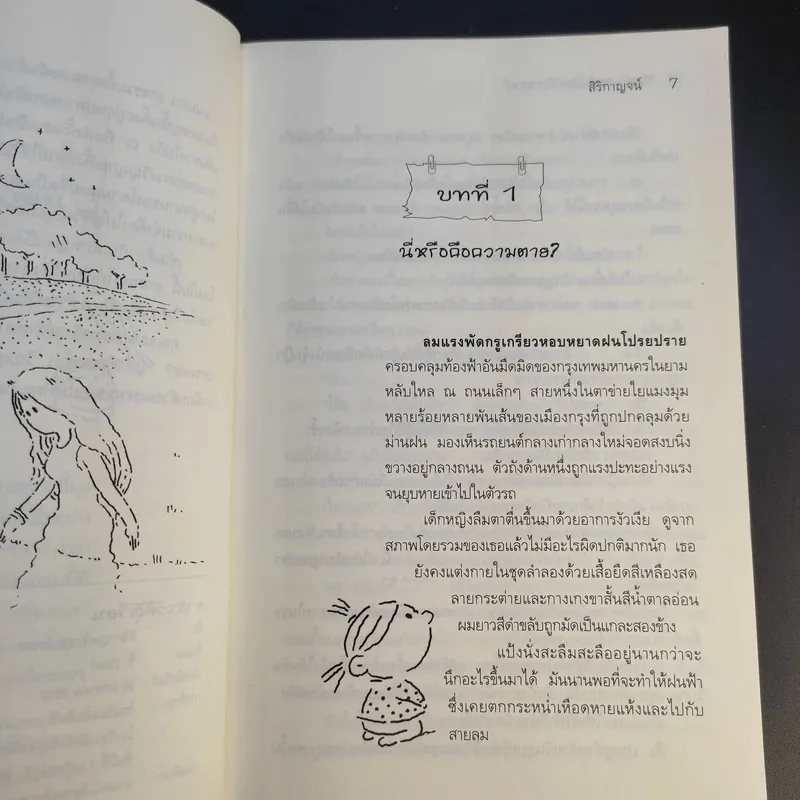 สิริกาญจน์ 7
บทที่ 1
นี่หรือคือความตาย?
ลมแรงพัดกรูเกรียวหอบหยาดฝนโปรยปราย
ครอบคลุมท้องฟ้าอันมืดมิดของกรุงเทพมหานครในยาม
หลับใหล ณ ถนนเล็กๆ สายหนึ่งในตาข่ายใยแมงมุม
หลายร้อยหลายพันเส้นของเมืองกรุงที่ถูกปกคลุมด้วย
ม่านฝน มองเห็นรถยนต์กลางเก่ากลางใหม่จอดสงบนิ่ง
ขวางอยู่กลางถนน ตัวถังด้านหนึ่งถูกแรงปะทะอย่างแรง
จนยุบหายเข้าไปในตัวรถ
เด็กหญิงลืมตาตื่นขึ้นมาด้วยอาการงัวเงีย ดูจาก
สภาพโดยรวมของเธอแล้วไม่มีอะไรผิดปกติมากนัก เธอ
ยังคงแต่งกายในชุดลำลองด้วยเสื้อยืดสีเหลืองสด
ลายกระต่ายและกางเกงขาสั้นสีน้ำตาลอ่อน
ผมยาวสีดำขลับถูกมัดเป็นแกละสองข้าง
แป้งนั่งสะลึมสะลืออยู่นานกว่าจะ
นึกอะไรขึ้นมาได้ มันนานพอที่จะทำให้ฝนฟ้า
ซึ่งเคยตกกระหน่ำเหือดหายแห้งและไปกับ
สายลม